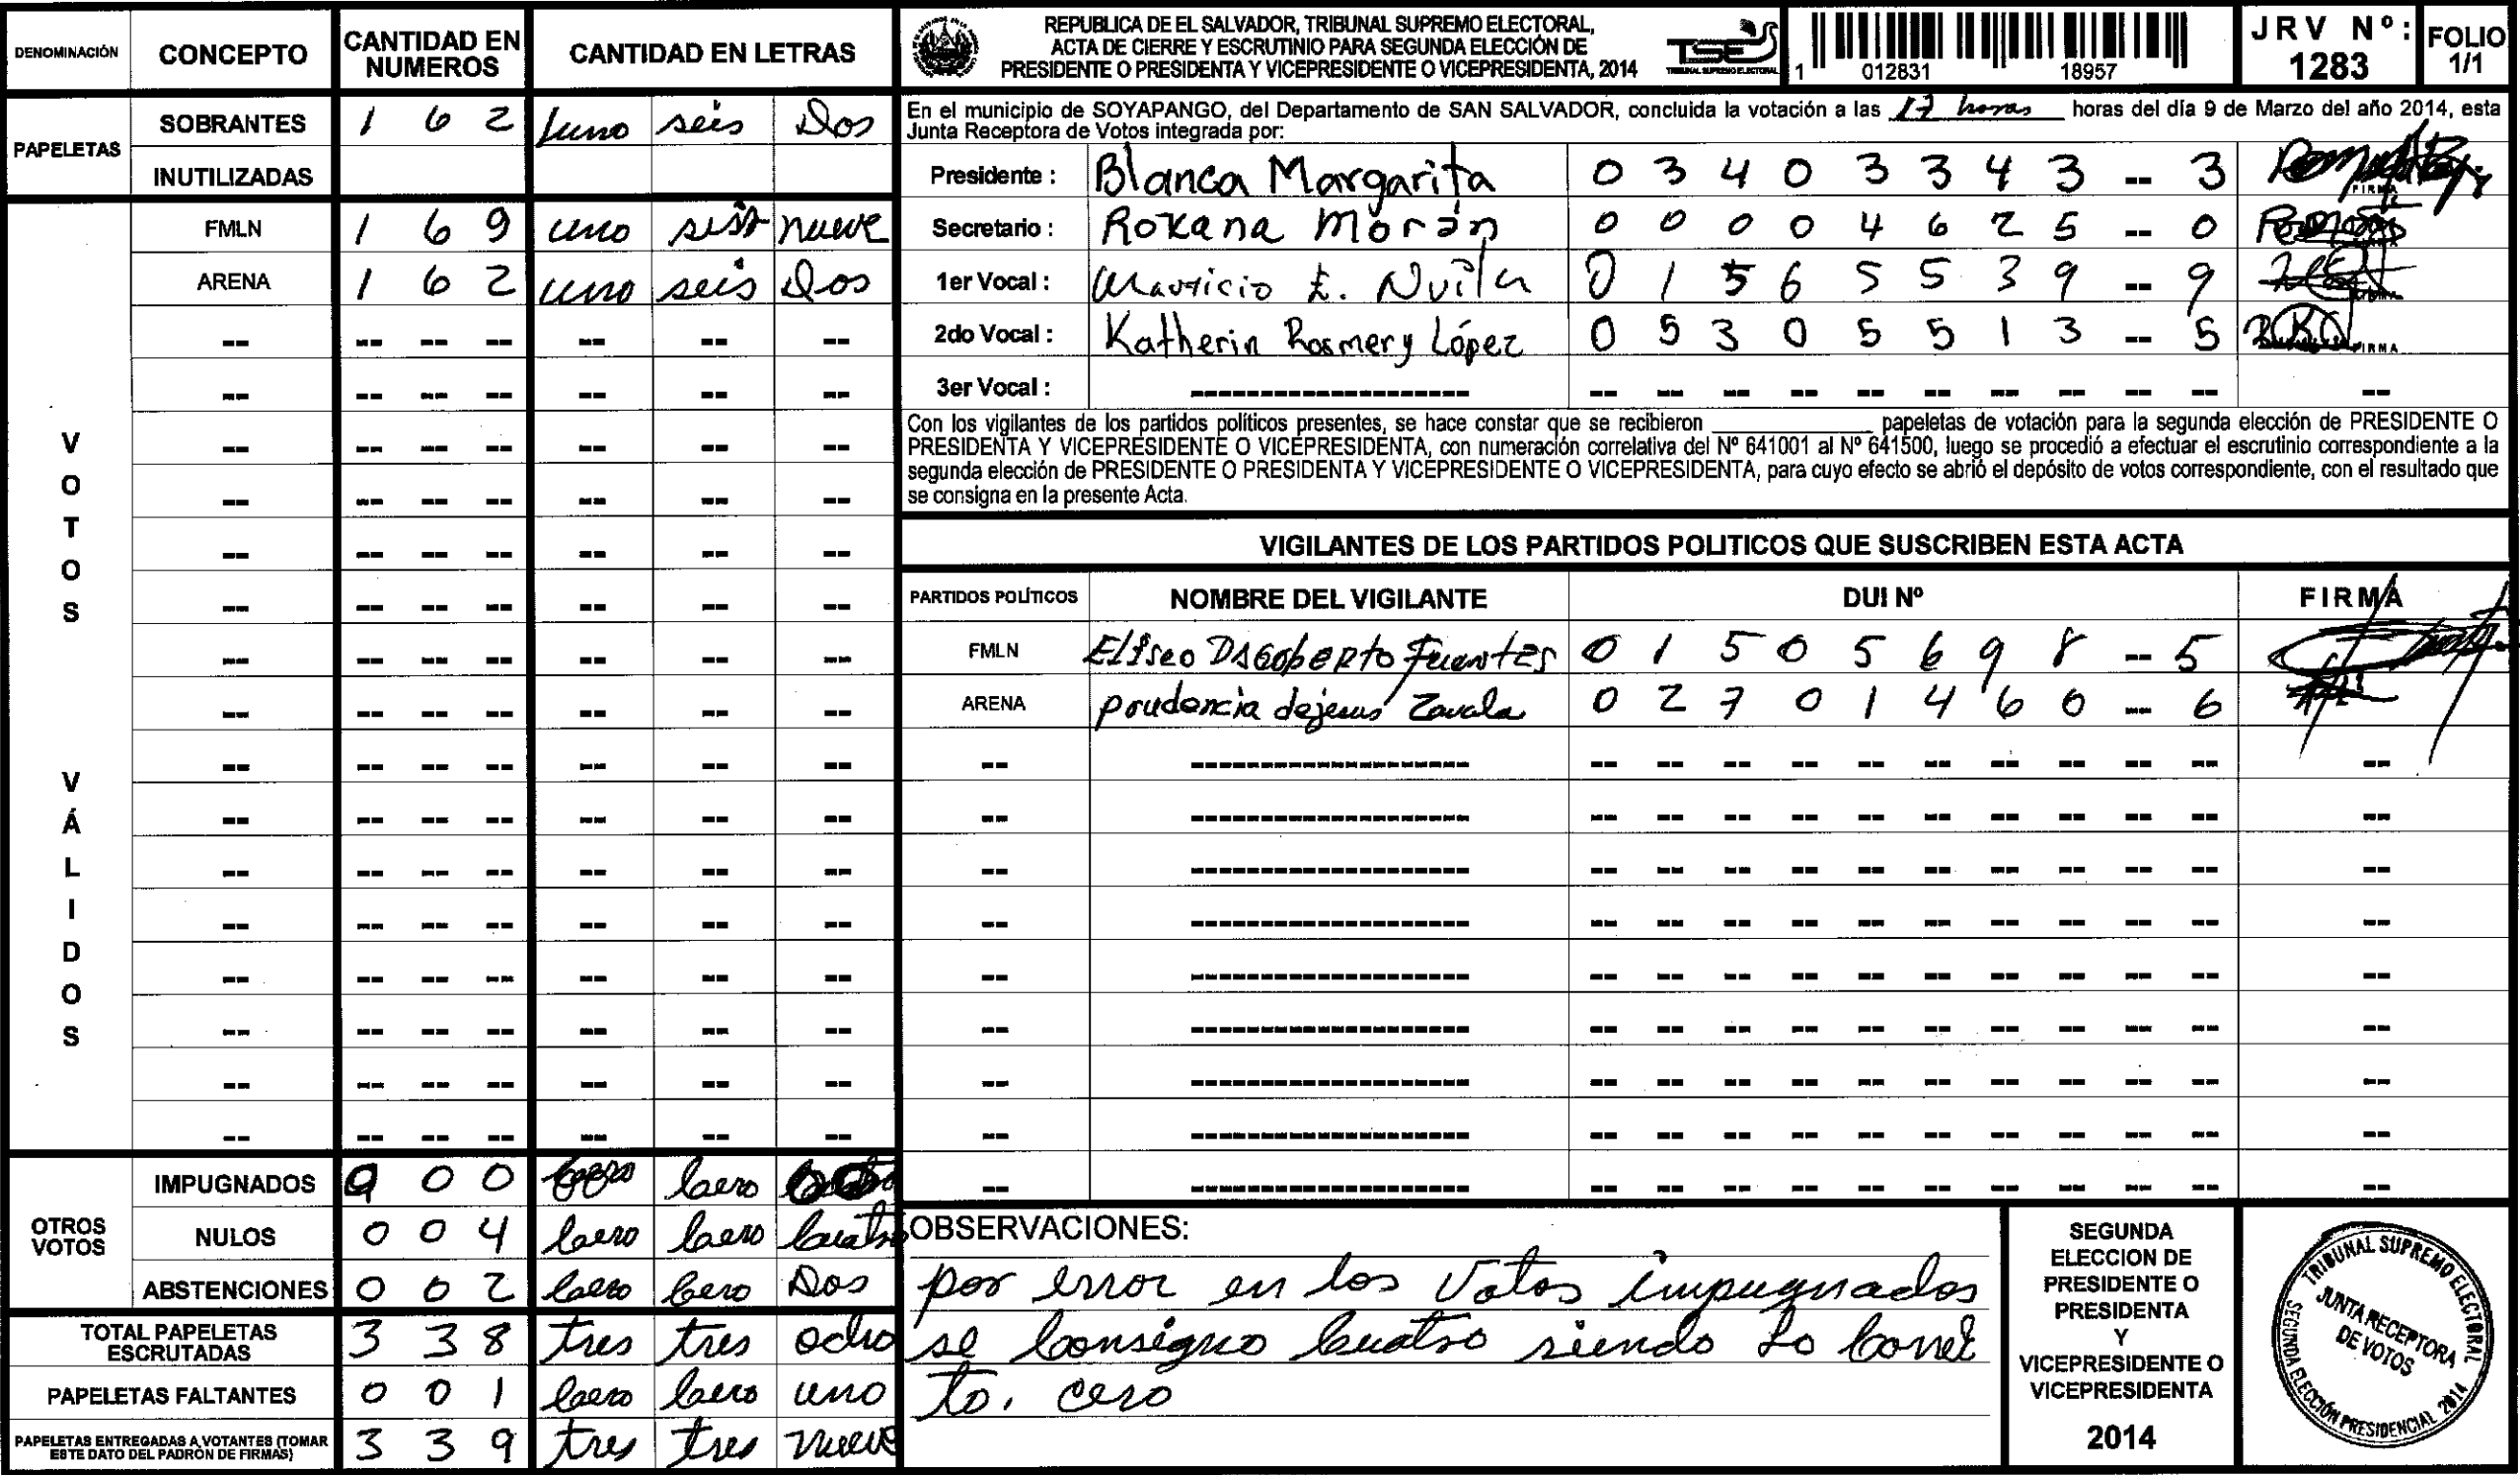 DENOMINACIÓN CONCEPTO CANTIDAD EN NUMEROS CANTIDAD EN LETRAS
PAPELETAS
SOBRANTES 1 6 2 uno seis Dos
INUTILIZADAS
VOTOS VÁLIDOS
FMLN 1 6 9 uno seis nueve
ARENA 1 6 2 uno seis Dos
OTROS VOTOS
IMPUGNADOS 0 0 0 cero cero
NULOS 0 0 4 cero cero cuatro
ABSTENCIONES 0 0 2 cero cero Dos
TOTAL PAPELETAS ESCRUTADAS 3 3 8 tres tres ocho
PAPELETAS FALTANTES 0 0 1 cero cero uno
PAPELETAS ENTREGADAS A VOTANTES (TOMAR ESTE DATO DEL PADRÓN DE FIRMAS) 3 3 9 tres tres nueve
REPUBLICA DE EL SALVADOR, TRIBUNAL SUPREMO ELECTORAL,
ACTA DE CIERRE Y ESCRUTINIO PARA SEGUNDA ELECCIÓN DE
PRESIDENTE O PRESIDENTA Y VICEPRESIDENTE O VICEPRESIDENTA, 2014
TSE
TRIBUNAL SUPREMO ELECTORAL
1 012831 18957
JRV Nº: 1283
FOLIO 1/1
En el municipio de SOYAPANGO, del Departamento de SAN SALVADOR, concluida la votación a las 17 horas horas del día 9 de Marzo del año 2014, esta
Junta Receptora de Votos integrada por:
Presidente : Blanca Margarita 0 3 4 0 3 3 4 3 -- 3 FIRMA
Secretario : Roxana Morán 0 0 0 0 4 6 2 5 -- 0
1er Vocal : Mauricio E. Nuila 0 1 5 6 5 5 3 9 -- 9
2do Vocal : Katherin Rosmery López 0 5 3 0 5 5 1 3 -- 5 FIRMA
3er Vocal :
Con los vigilantes de los partidos políticos presentes, se hace constar que se recibieron papeletas de votación para la segunda elección de PRESIDENTE O
PRESIDENTA Y VICEPRESIDENTE O VICEPRESIDENTA, con numeración correlativa del Nº 641001 al Nº 641500, luego se procedió a efectuar el escrutinio correspondiente a la
segunda elección de PRESIDENTE O PRESIDENTA Y VICEPRESIDENTE O VICEPRESIDENTA, para cuyo efecto se abrió el depósito de votos correspondiente, con el resultado que
se consigna en la presente Acta.
VIGILANTES DE LOS PARTIDOS POLITICOS QUE SUSCRIBEN ESTA ACTA
PARTIDOS POLÍTICOS NOMBRE DEL VIGILANTE DUI Nº FIRMA
FMLN Eliseo DAGoberto Fuentes 0 1 5 0 5 6 9 8 -- 5
ARENA prudencia dejesus Zavala 0 2 7 0 1 4 6 0 -- 6
OBSERVACIONES:
por error en los Votos impugnados
se consigno cuatro siendo Lo correc
to. cero
SEGUNDA
ELECCION DE
PRESIDENTE O
PRESIDENTA
Y
VICEPRESIDENTE O
VICEPRESIDENTA
2014
TRIBUNAL SUPREMO ELECTORAL
JUNTA RECEPTORA
DE VOTOS
SEGUNDA ELECCIÓN PRESIDENCIAL 2014